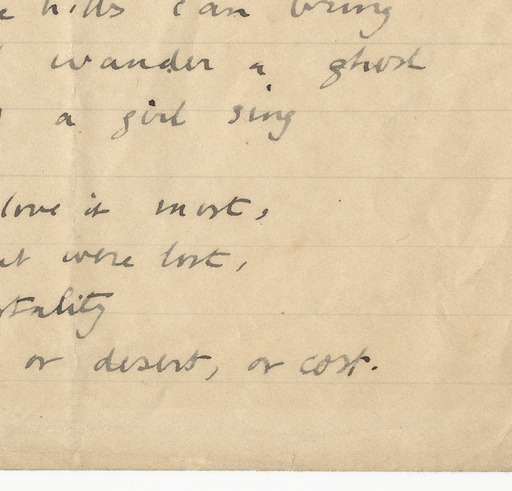 hills can bring
wander a ghost
a girl sing
love it most,
were lost,
or desert, or cost.